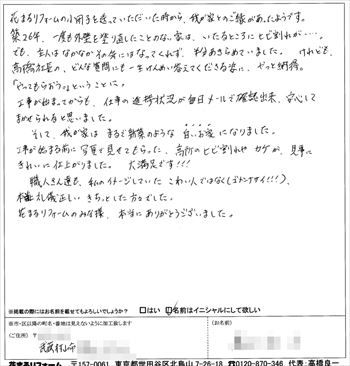 花まるリフォームの小冊子を送っていただいた時から、我が家とのご縁があったようです。
築26年、一度も外壁を塗り直したことのない家は、いたるところにヒビ割れが…。
でも、主人はなかなかその気にはなってくれず、半分あきらめていました。けれども、
高橋社長の、どんな質問にも一生けんめい答えてくださる姿に、やっと納得。
「やってもらおう」ということに。
工事が始まってからも、仕事の進捗状況が毎日メールで確認出来、安心して
まかせられると思いました。
そして、我が家はまるで新築のような白いお家になりました。
工事が始まる前に写真で見せてもらった、高所のヒビ割れやカケが、見事に
きれいに仕上がりました。大満足です!!!
職人さん達も、私のイメージしていたこわい人ではなく(ゴメンナサイ!!!)、
礼儀正しいきちっとした方々でした。
花まるリフォームのみな様、本当にありがとうございました。
※掲載の際にはお名前を載せてもよろしいでしょうか? □はい ☑名前はイニシャルにして欲しい
※市・区以降の町名・番地は見えないように加工致します
(ご住所) 〒
(お名前)
武蔵村山市
花まるリフォーム 〒157-0061 東京都世田谷区北烏山7-26-18 ☎0120-870-346 代表:高橋良一